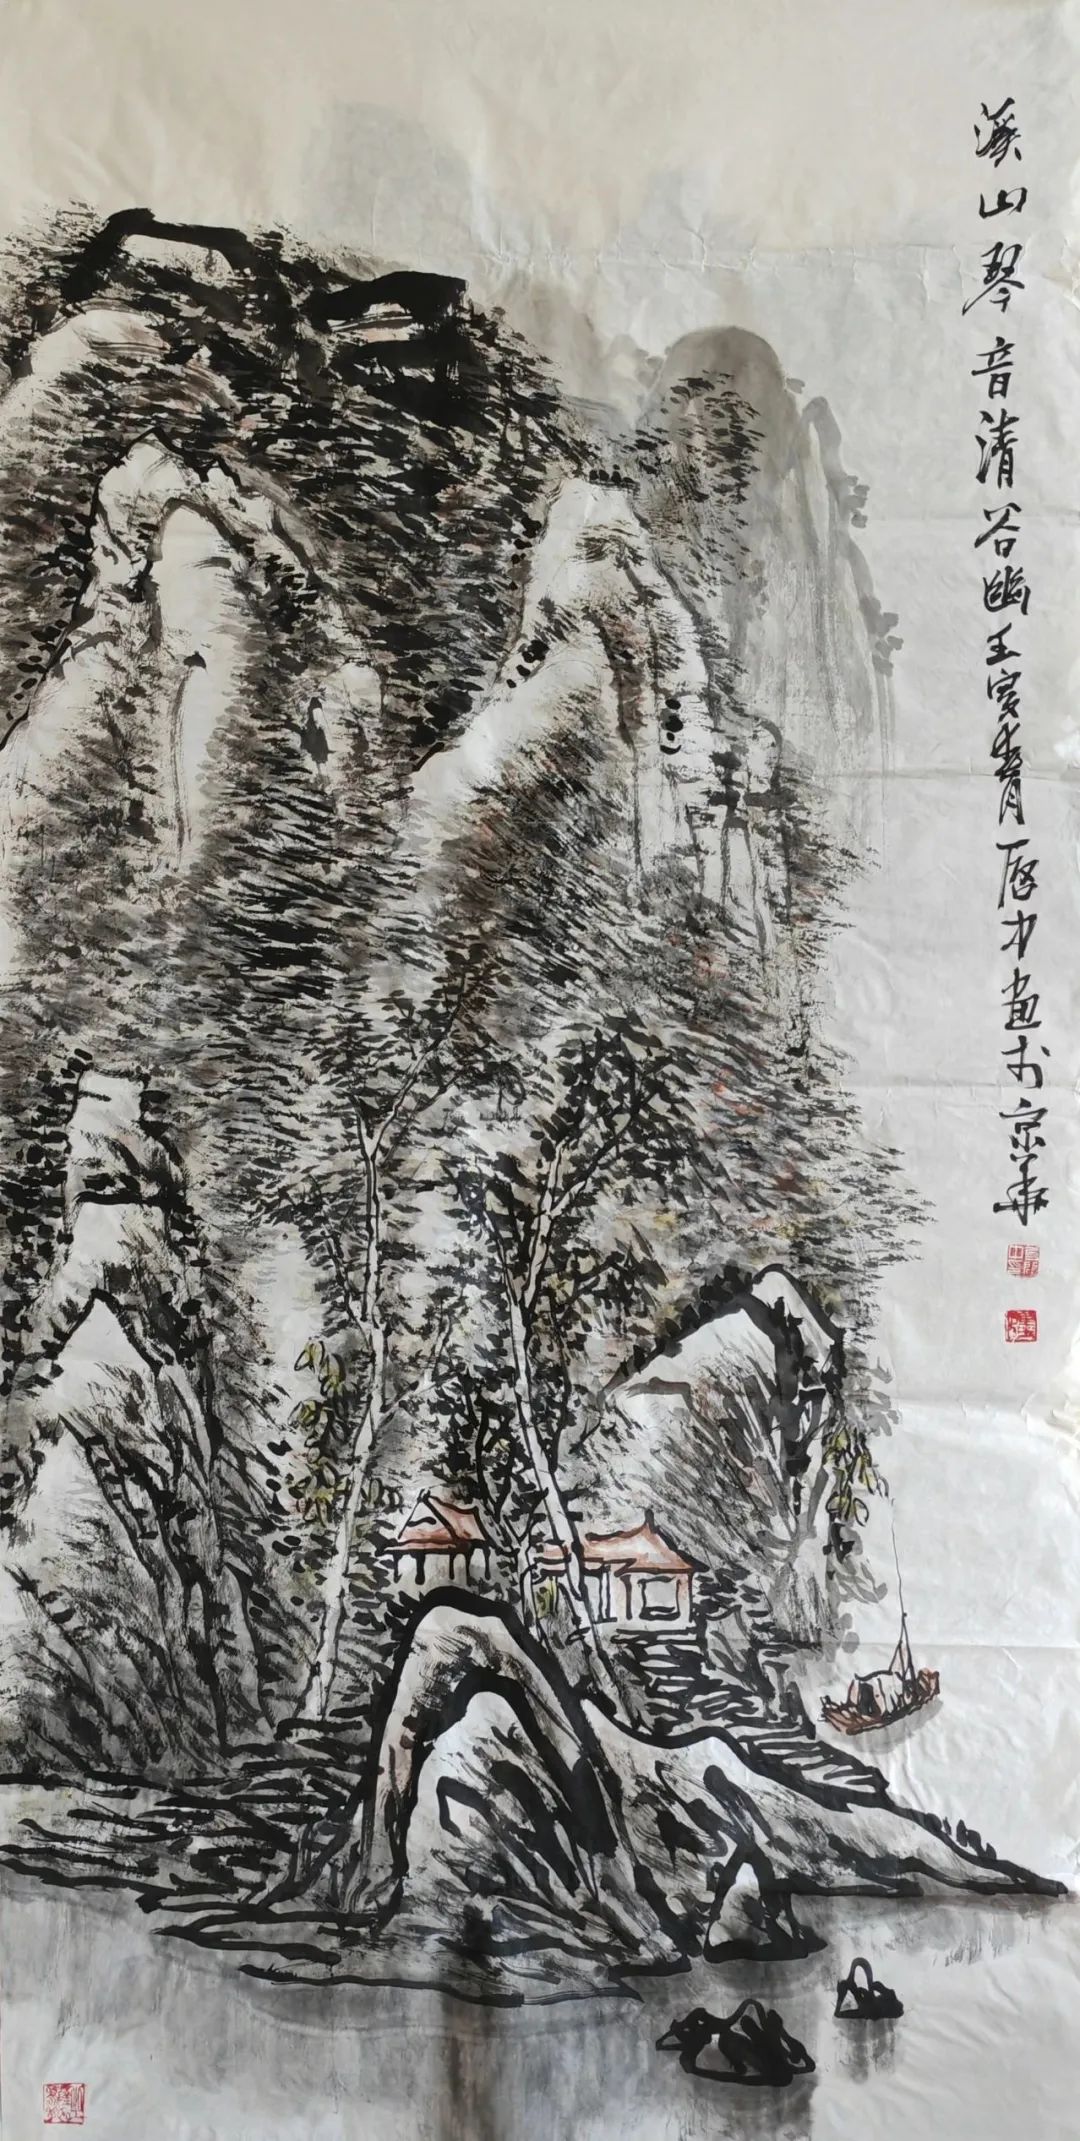 溪山琴音清谷幽壬寅春月厚才画于京华